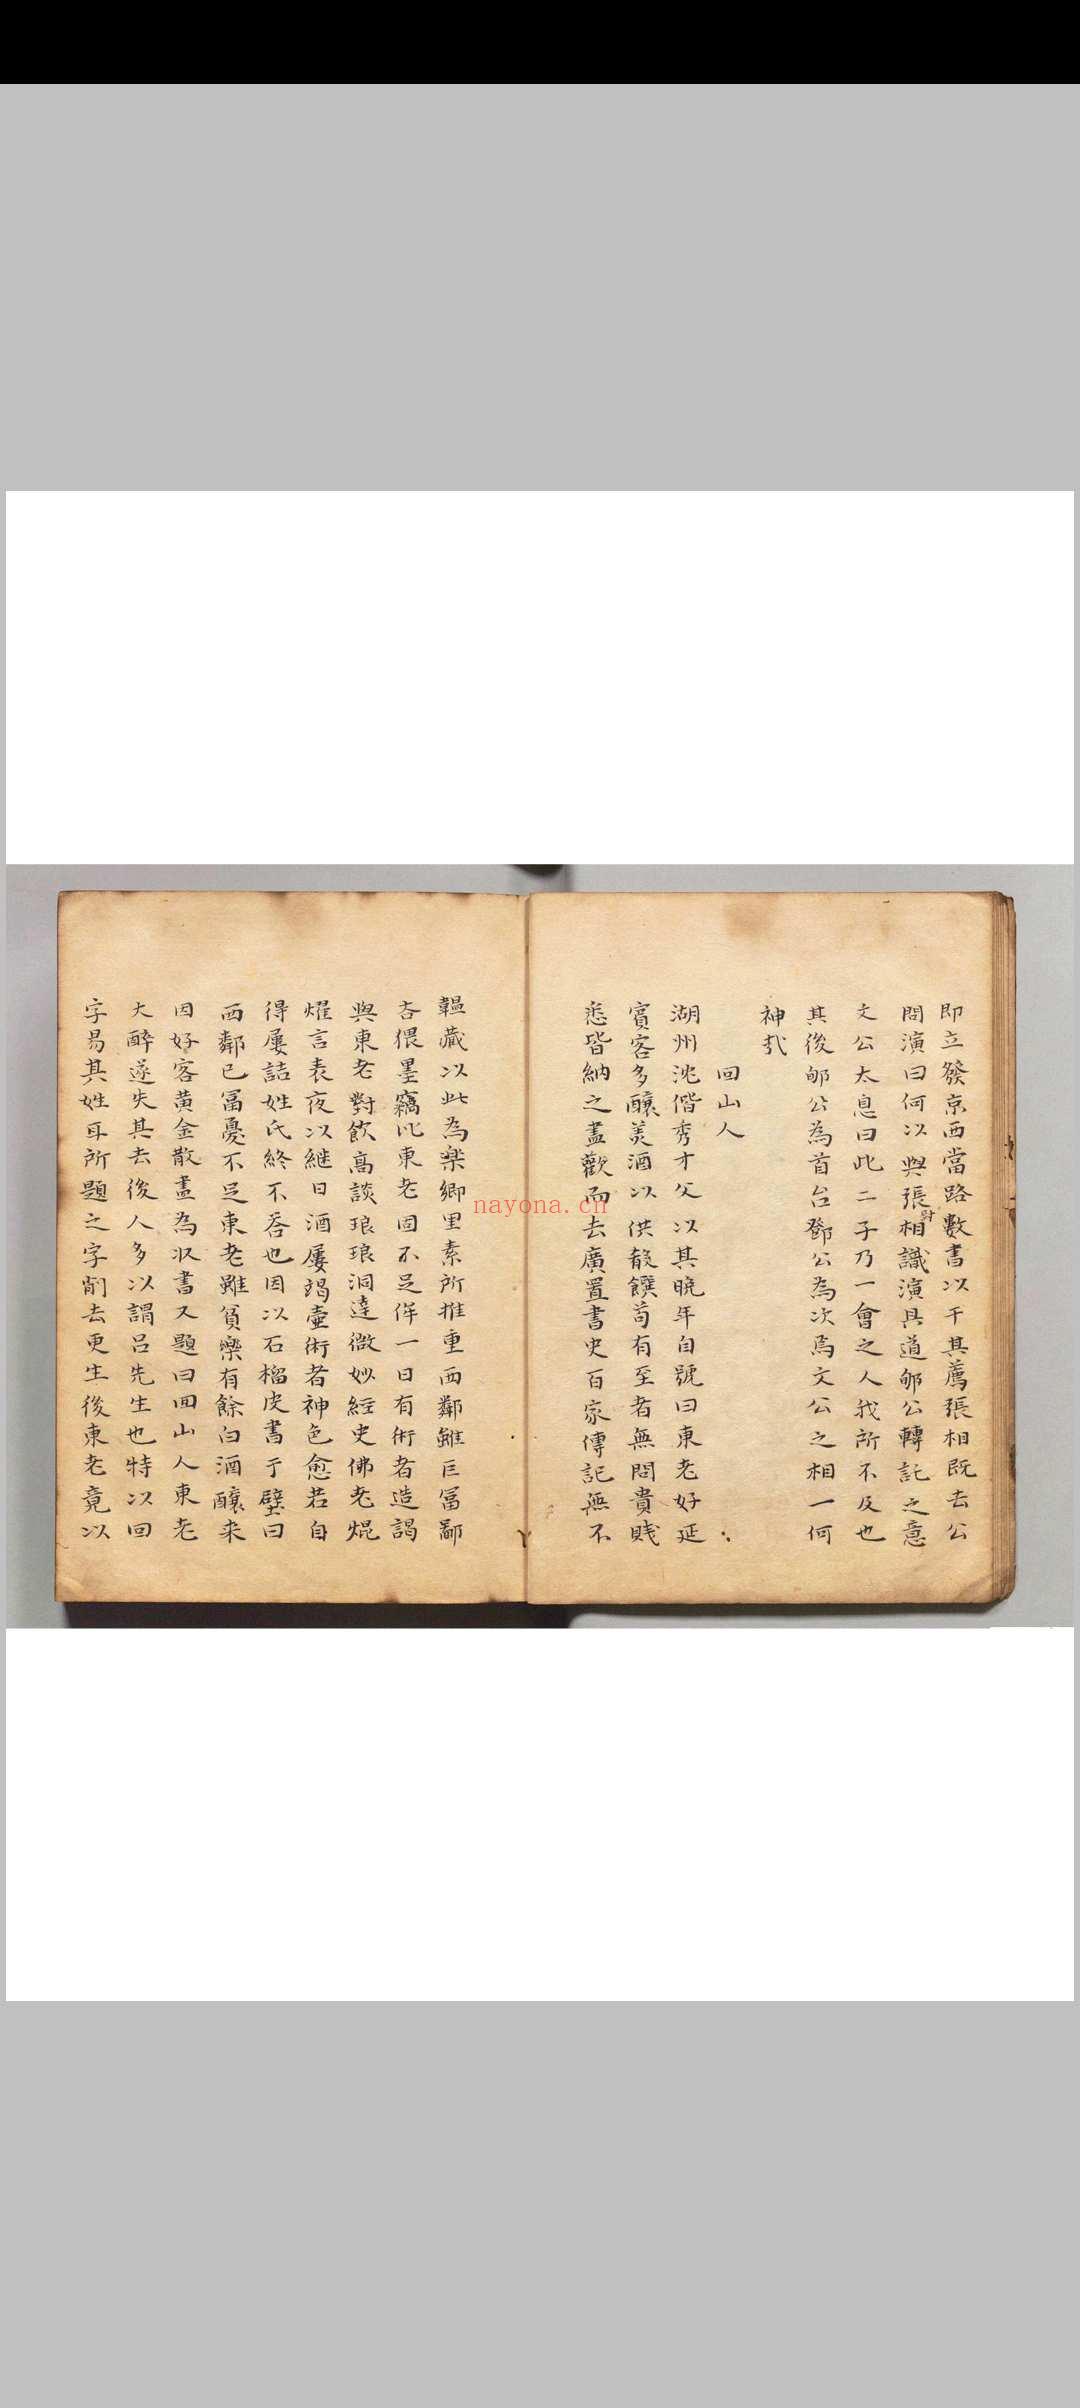 即立發京西當路數書以干其薦張相既去公
問演曰何以與張相識演具道郇公轉託之意
文公太息曰此二子乃一會之人我所不及也
其後郇公為首台鄧公為次焉文公之相一何
神哉
回山人
湖州沈偕秀才父以其晚年自號曰東老好延
賓客多釀美酒以供殽饌苟有至者無問貴賤
悉皆納之盡歡而去廣置書史百家傳記無不
韞藏以此為樂鄉里素所推重西鄰雖巨冨鄙
吝猥墨竊比東老固不足侔一日有術者造謁
與東老對飲高談琅琅洞達微妙經史佛老焜
燿言表夜以継日酒屢竭壷術者神色愈若自
得屢詰姓氏終不荅也因以石榴皮書于壁曰
西鄰已冨憂不足東老雖貧樂有餘白酒釀来
因好客黃金散盡為収書又題曰回山人東老
大醉遂失其去後人多以謂呂先生也特以回
字易其姓耳所題之字削去更生後東老竟以
nayona.cn